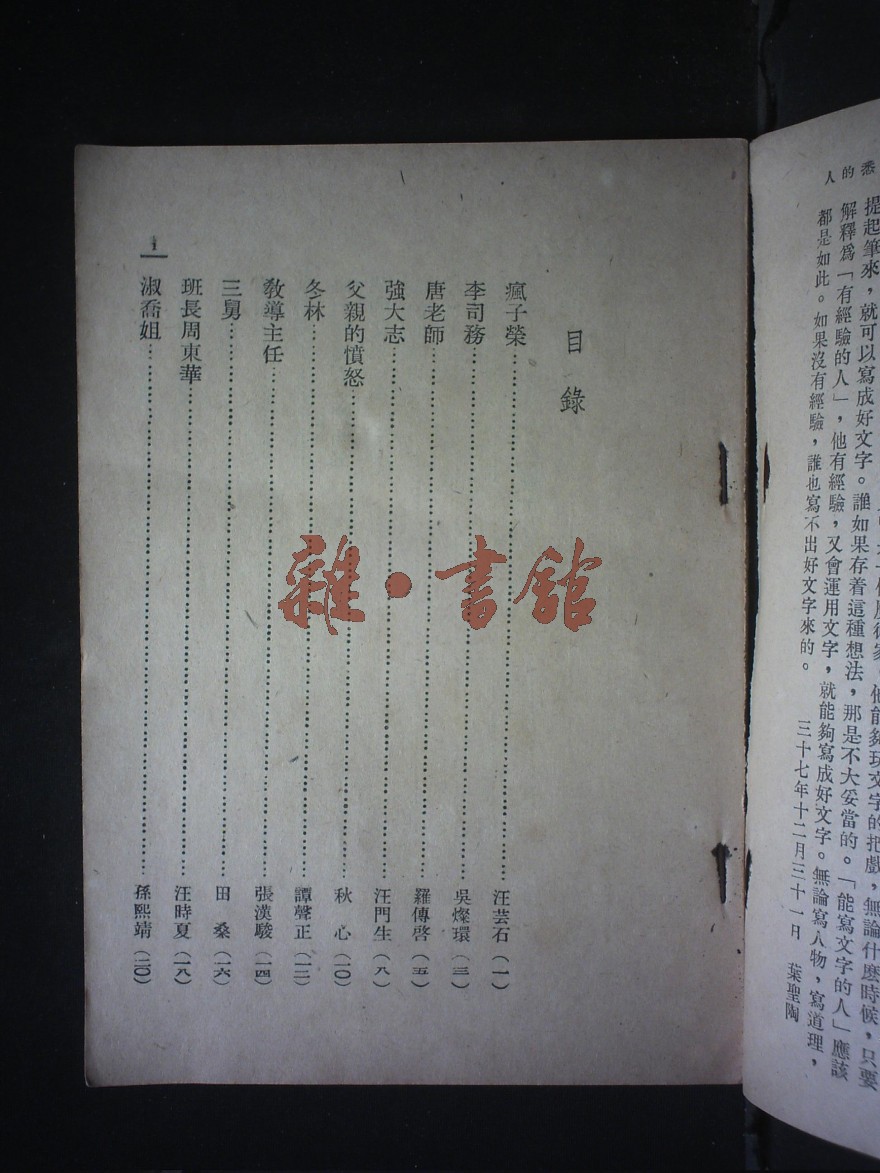 悉
的
人
提起筆來，就可以寫成好文字。誰如果存着這種想法，那是不大妥當的。「能寫文字的人」應該
解釋爲「有經驗的人」，他有經驗，又會運用文字，就能夠寫成好文字。無論寫人物，寫道理，
都是如此。如果沒有經驗，誰也寫不出好文字來的。
三十七年十二月三十一日　葉聖陶
目錄
瘋子榮……汪芸石（一）
李司務……吳燦環（三）
唐老師……羅傳啓（五）
強大志……汪門生（八）
父親的憤怒……秋　心（一〇）
冬林……譚聲正（一二）
敎導主任……張漢駿（一四）
三舅……田　桑（一六）
班長周東華……汪時夏（一八）
淑喬姐……孫熙靖（二〇）
1
雜·書館